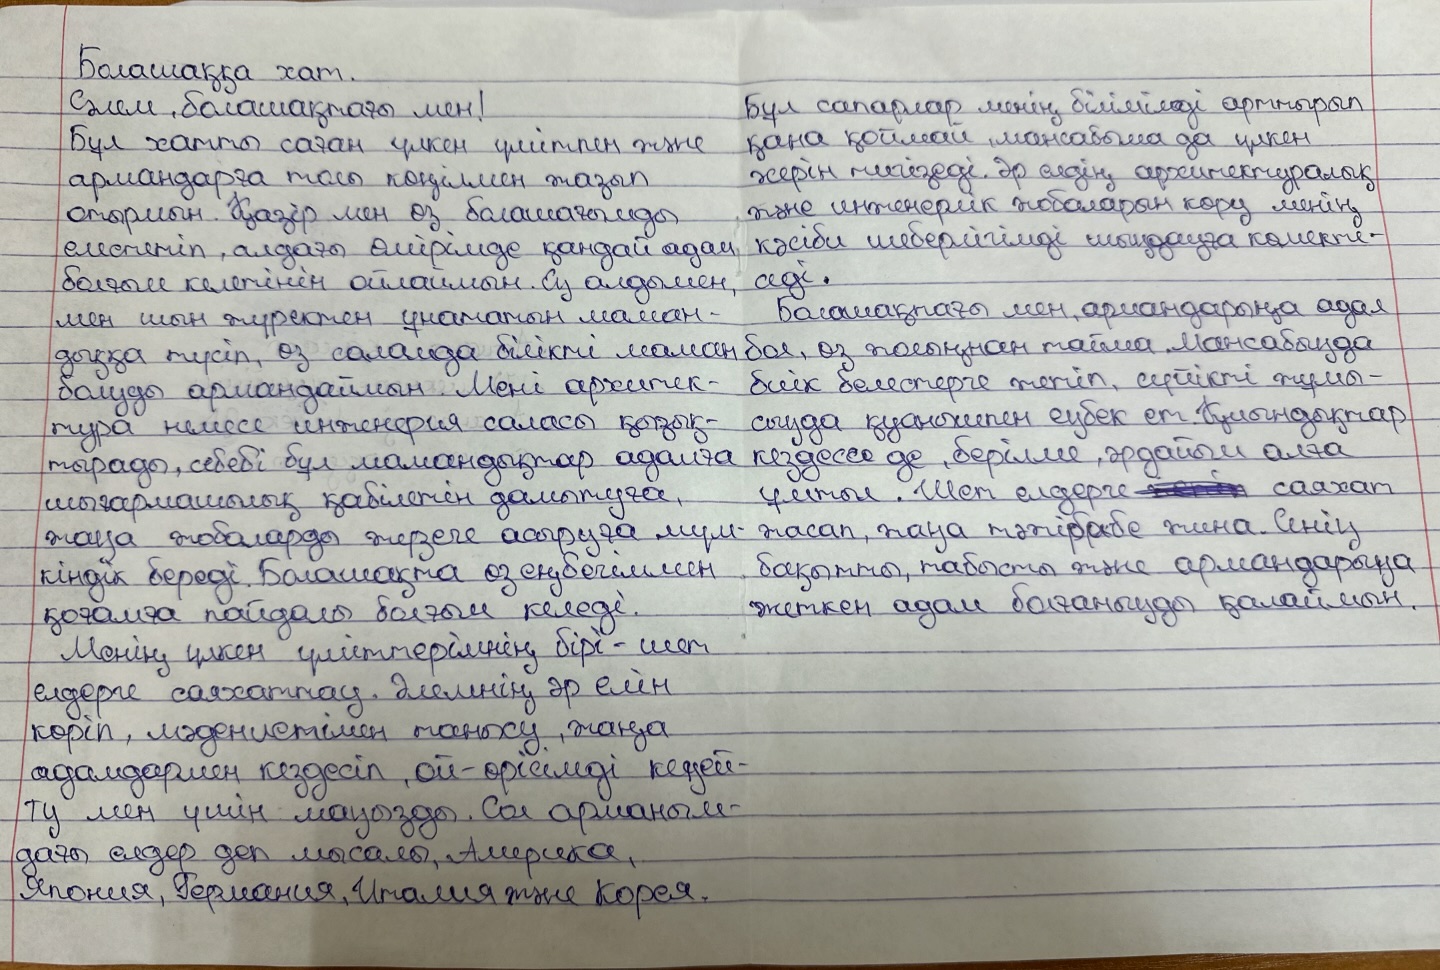 Болашаққа хат.
Сәлем, болашақтағы мен!
Бұл хатты саған үлкен үмітпен және
армандарға толы көңілмен жазып
отырмын. Қазір мен өз болашағымды
елестетіп, алдағы өмірімде қандай адам
болғым келетінін ойлаймын. Ең алдымен,
мен шын жүректен ұнататын маман-
дыққа түсіп, өз саламда білікті маман
болуды армандаймын. Мені архитек-
тура немесе инженерия саласы қызық-
тырады, себебі бұл мамандықтар адамға
шығармашылық қабілетін дамытуға,
жаңа жобаларды жүзеге асыруға мүм-
кіндік береді. Болашақта өз еңбегіммен
қоғамға пайдалы болғым келеді.
Менің үлкен үміттерімнің бірі - шет
елдерге саяхаттау. Әлемнің әр елін
көріп, мәдениетімен танысу, жаңа
адамдармен кездесіп, ой-өрісімді кеңей-
ту мен үшін маңызды. Сол арманым-
дағы елдер деп мысалы, Америка,
Япония, Германия, Италия және Корея.
Бұл сапарлар менің білімімді арттырып
қана қоймай, мансабыма да үлкен
әсерін тигізеді. Әр елдің архитектуралық
және инженерлік жобаларын көру менің
кәсіби шеберлігімді шыңдауға көмекте-
седі.
Болашақтағы мен, армандарыңа адал
бол, өз жолыңнан тайма. Мансабыңда
биік белестерге жетіп, сүйікті жұмы-
сыңда қуанышпен еңбек ет. Қиындықтар
кездессе де, берілме, әрдайым алға
ұмтыл. Шет елдерге саяхат
жасап, жаңа тәжірибе жина. Сенің
бақытты, табысты және армандарыңа
жеткен адам болғаныңды қалаймын.